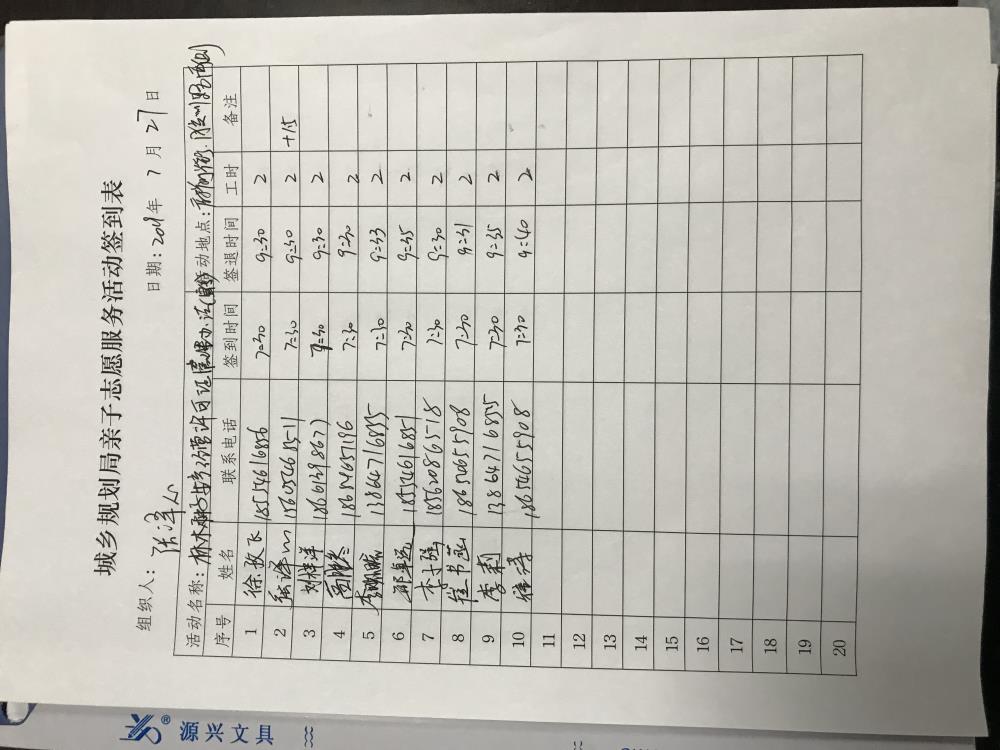 城乡规划局亲子志愿服务活动签到表
组织人：张泽 日期：2019年 7 月 27 日
活动名称： 许可证 活动地点：
序号 姓名 联系电话 签到时间 签退时间 工时 备注
1 徐孜飞 18554616856 7:30 9:30 2
2 张泽 15605468511 7:30 9:30 2 +15
3 刘祥洋 18661398677 7:30 9:30 2
4 18654657196 7:30 9:30 2
5 李 13864716855 7:30 9:33 2
6 18554616851 7:30 9:35 2
7 李 18562086518 7:30 9:30 2
8 崔书 18654655908 7:30 9:31 2
9 李莉 13864716855 7:30 9:35 2
10 18654655908 7:30 9:40 2
11
12
13
14
15
16
17
18
19
20
® 源兴文具